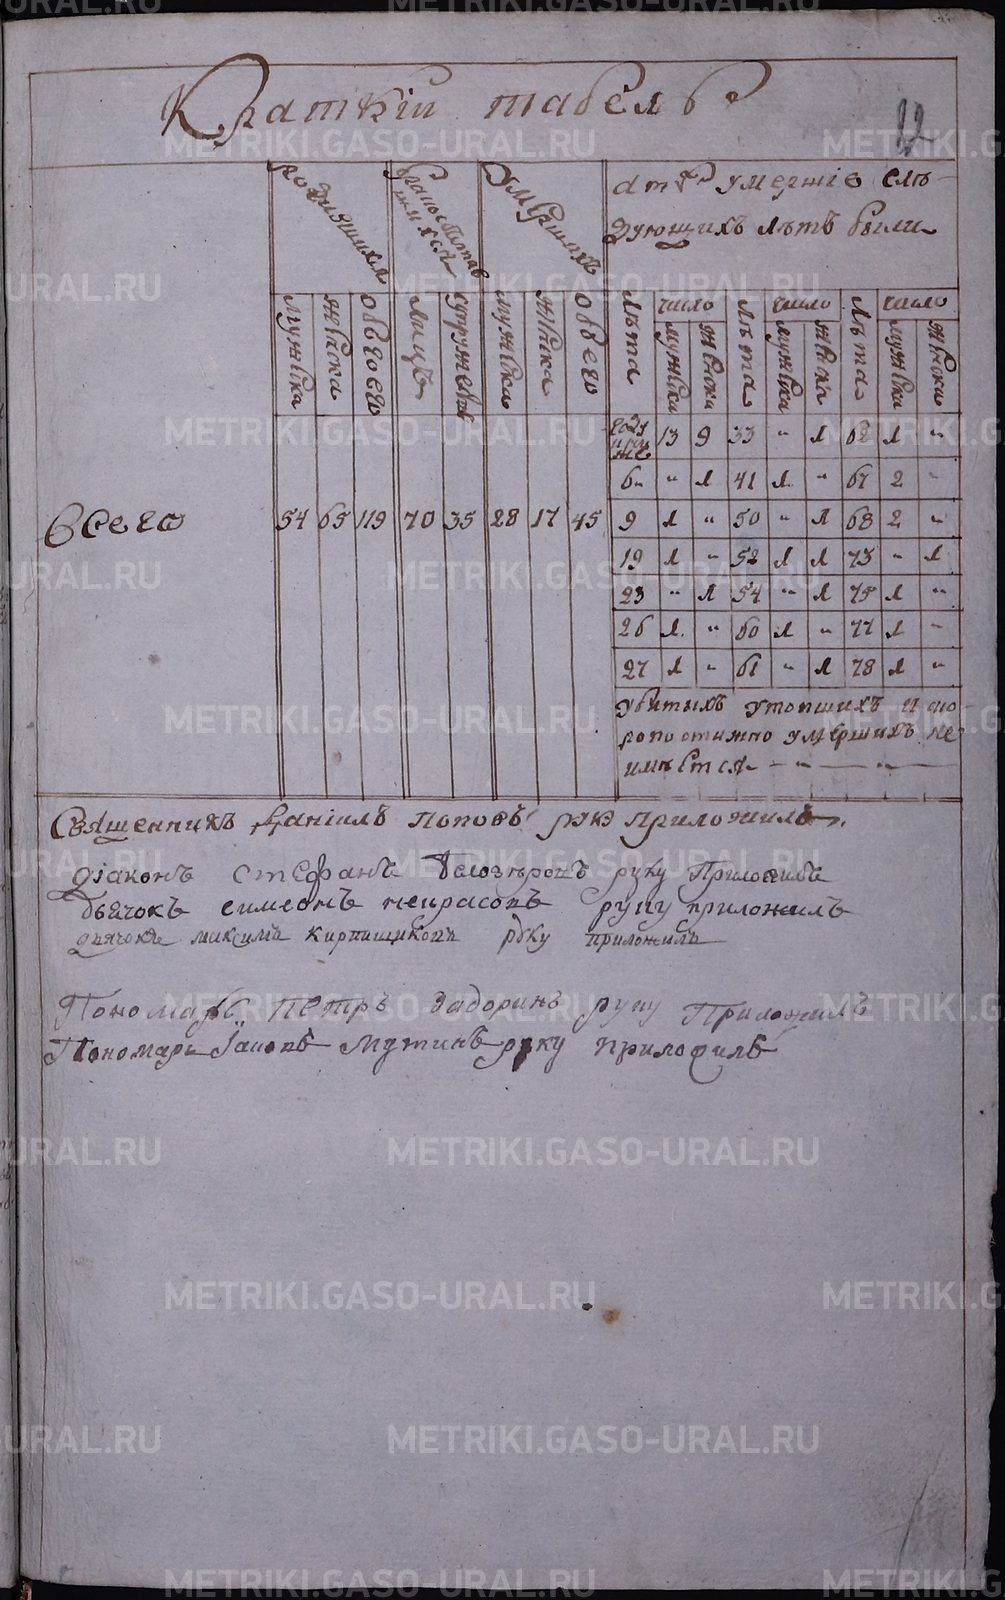 Краткiй табель
22
родившихся
бракосочетавшихся
умершихъ
а тѣ умершiе слѣ-
дующихъ лѣтъ были
мужска
женска
обоего
лицъ
супружествъ
мужска
женска
обоего
лѣта число лѣта число лѣта число
мужска женска мужска женска мужска женска
году и ниже 13 9 33 " 1 62 1 "
6 " 1 41 1 " 67 2 "
всего 54 65 119 70 35 28 17 45 9 1 " 50 " 1 68 2 "
19 1 " 52 1 1 73 " 1
23 " 1 54 " 1 75 1 "
26 1 " 60 1 " 77 1 "
27 1 " 61 " 1 78 1 "
убитыхъ утопшихъ и ско-
ропостижно умершихъ не
имѣется
Священникъ Данiилъ Поповъ руку приложилъ.
Дiаконъ Стефанъ Белозеровъ руку приложилъ
дьячокъ симеонъ некрасовъ руку приложилъ
дьячокъ максимъ кирпищиковъ руку приложилъ
Пономарь Петръ Задоринъ руку Приложилъ
Пономарь Iаковъ Мутинъ руку приложилъ
METRIKI.GASO-URAL.RU